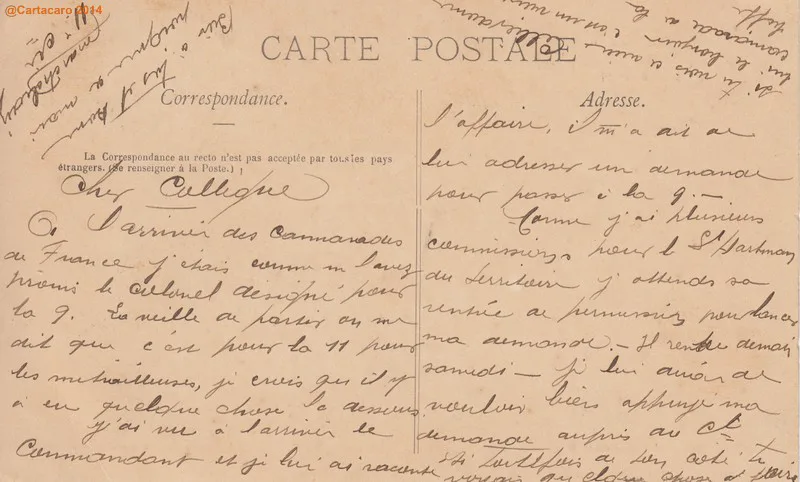 @Cartacaro 2014
CARTE POSTALE
Correspondance.
Adresse.
La Correspondance au recto n'est pas acceptée par tous les pays
étrangers. (Se renseigner à la Poste.)
Cher Collegue
A l'arriver des cammarades
de France j'etais comme m l'avez
promis le colonel désigné pour
la 9. La veille de partir on me
dit que c'est pour la 11 pour
les mitrailleuses, je crois que il y
a eu quelque chose la dessous
j'ai vu à l'arriver le
Commandant et je lui ai raconté
l'affaire, il m'a dit de
lui adresser un demande
pour passer à la 9. —
Comme j'ai plusieurs
pour le St
du territoire j'attends sa
rentrée de permission pour lancer
ma demande. — Il rentre demain
samedi — je lui
vouloir bien appuyé ma
demande aupres du Ct
si toutefois de ton coté tu
quelque chose